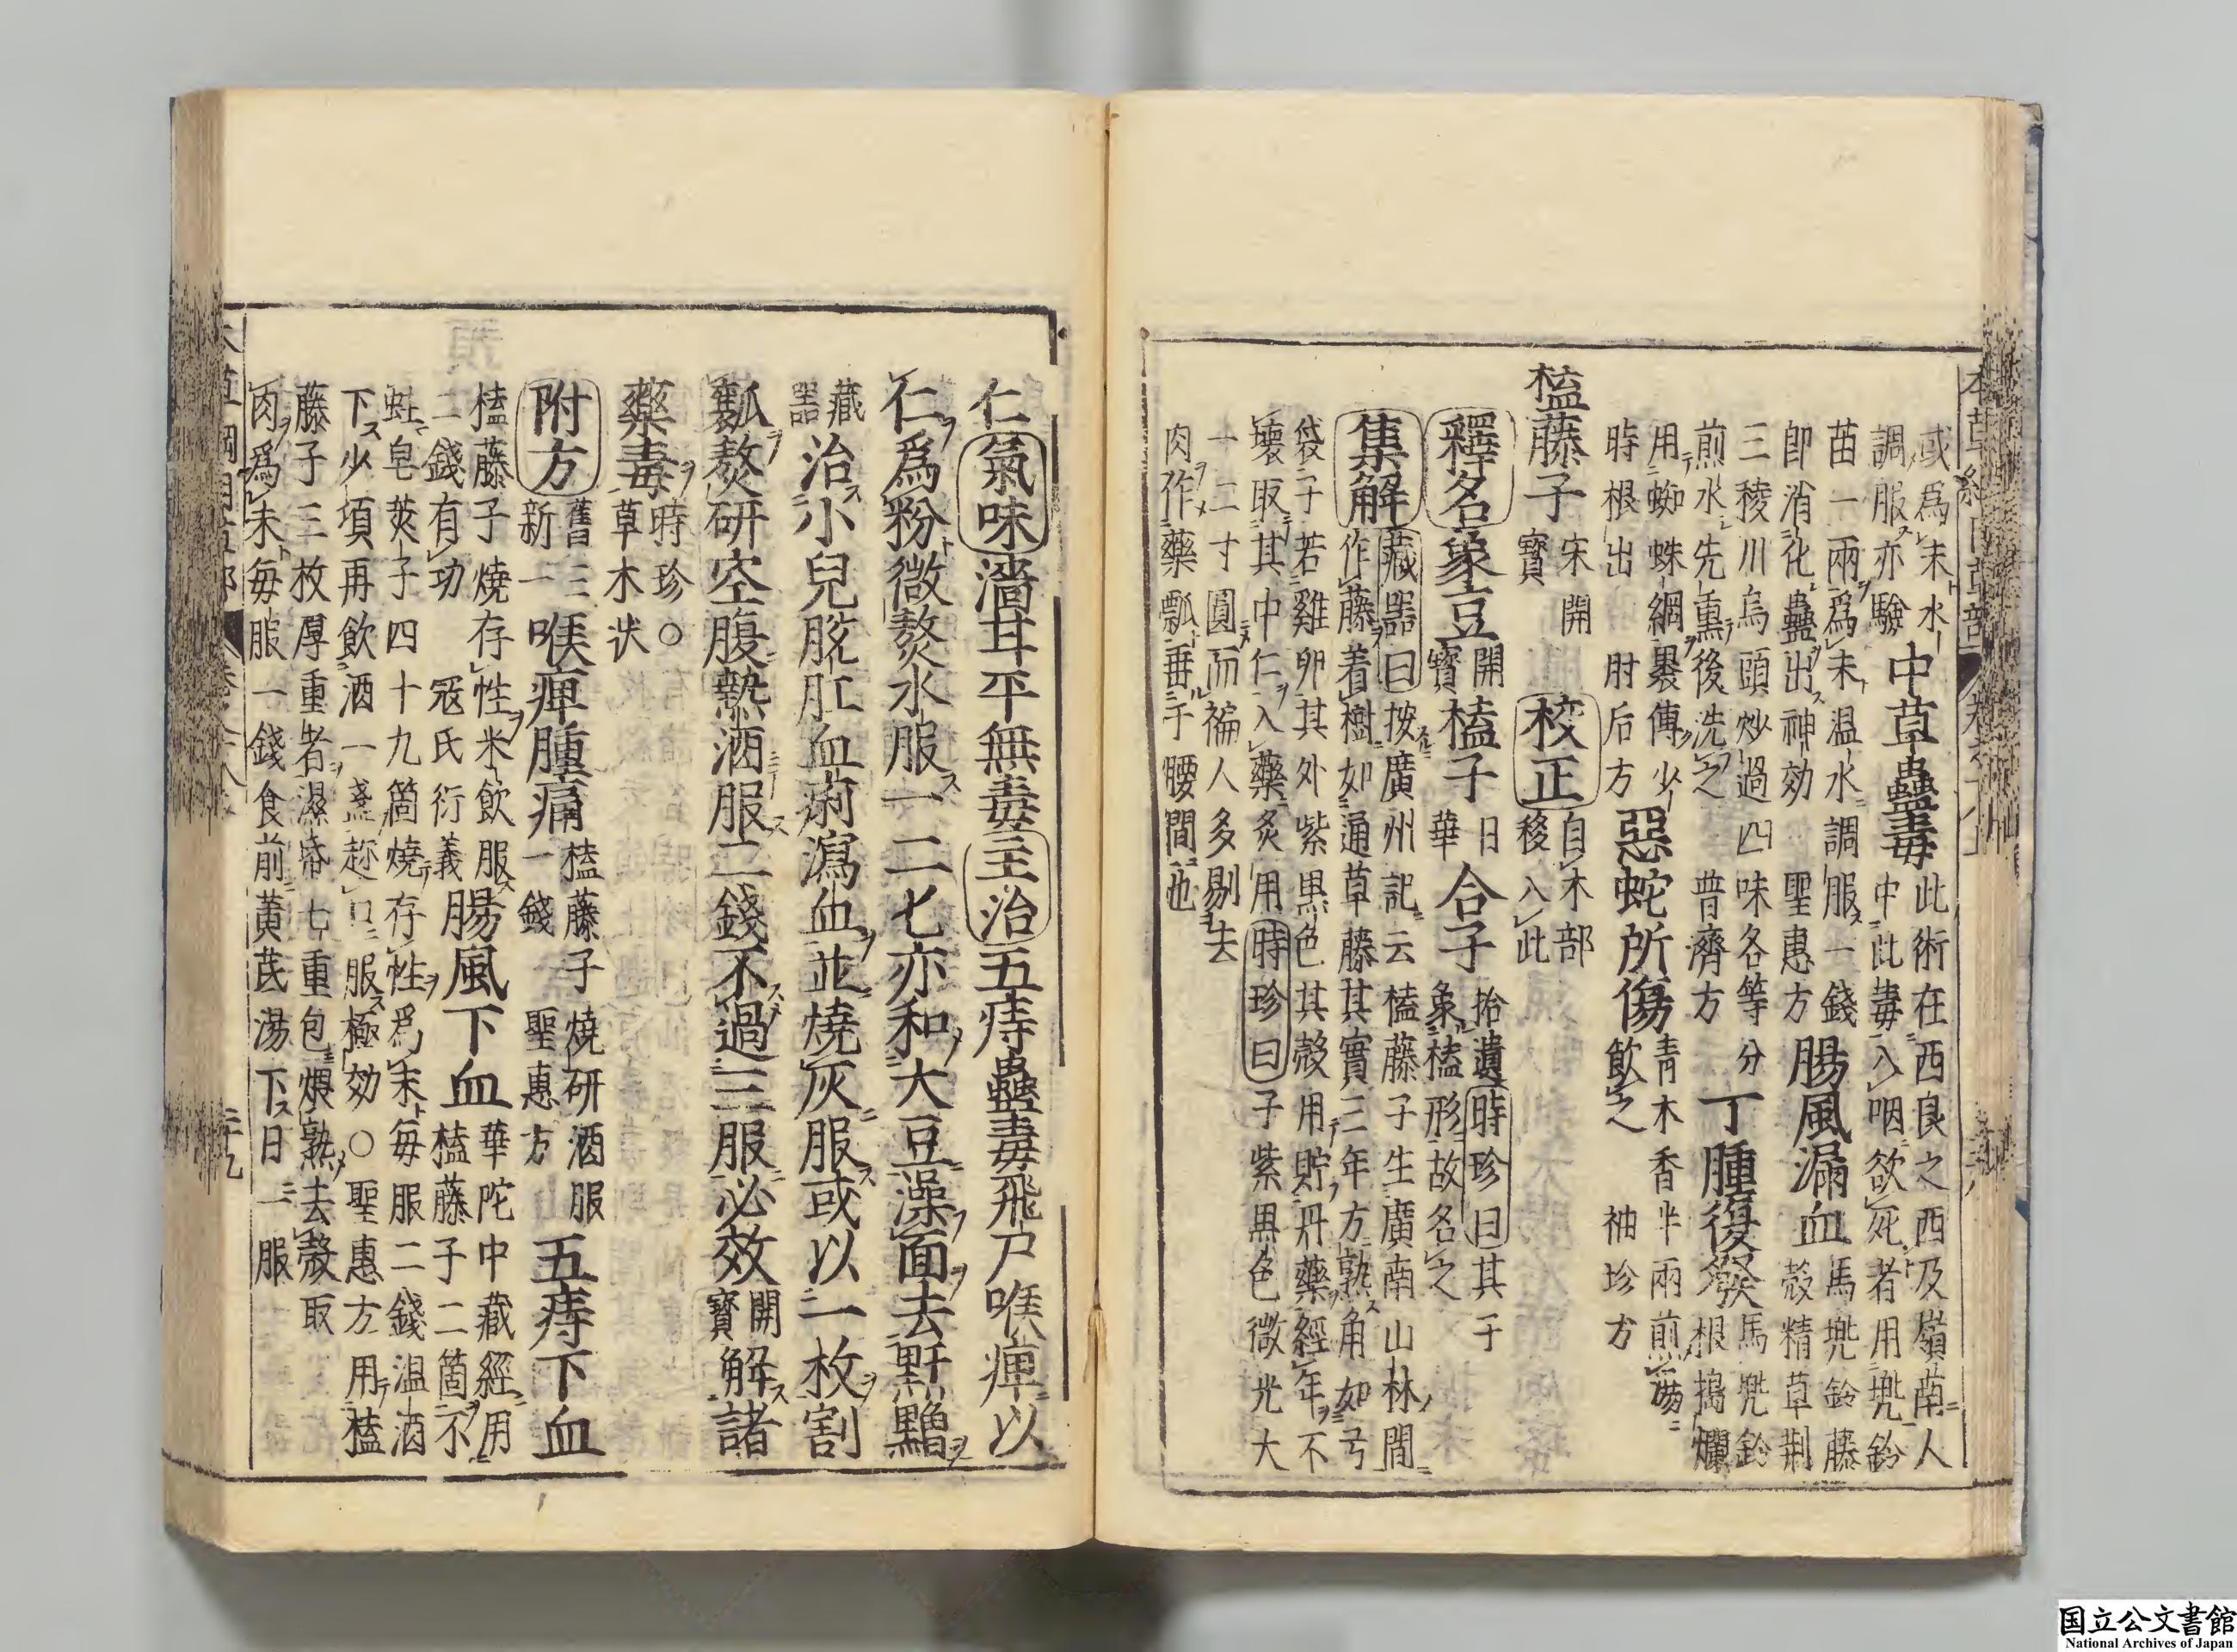 或爲末水
調服亦驗 中草蠱毒 此術在西良之西及嶺南人
中此毒入咽欲死者用兜鈴
苗一兩爲末温水調服一錢
卽消化蠱出神効 聖惠方 腸風漏血 馬兜鈴藤
穀精草荆
三稜川烏頭炒過四味各等分
煎水先熏後洗之 普濟方 丁腫復發 馬兜鈴
根搗爛
用蜘蛛網裹傅少
時根出 肘后方 惡蛇所傷 靑木香半兩煎湯
飲之 袖珍方
榼藤子 宋開
寳 校正 自木部
移入此
釋名 象豆 開
寳 榼子 日
華 合子 拾遺 時珍曰其子
象榼形故名之
集解 藏噐曰按廣州記云榼藤子生廣南山林間
作藤着樹如通草藤其實三年方熟角如弓
袋子若雞卵其外紫黒色其殼用貯丹藥經年不
壊取其中仁入藥炙用 時珍曰子紫黒色微光大
一二寸圓而褊人多剔去
肉作藥瓢垂于腰間也
仁 氣味 濇甘平無毒 主治 五痔蠱毒飛尸喉痺以
仁爲粉微熬水服一二七亦和大豆澡面去䵟䵳
藏
噐 治小兒脫肛血痢瀉血並燒灰服或以一枚割
瓤熬研空腹熱酒服二錢不過三服必效 開
寳 解諸
藥毒 時珍○
草木狀
附方 舊三
新一 喉痺腫痛 榼藤子燒研酒服
一錢 聖惠方 五痔下血
榼藤子燒存性米飲服
二錢有功 冦氏衍義 腸風下血 華陀中藏經用
榼藤子二箇不
蛀皂莢子四十九箇燒存性爲末毎服二錢温酒
下少頃再飲酒一盞趂口服極効○聖惠方用榼
藤子三枚厚重者濕帋七重包煨熟去殼取
肉爲末毎服一錢食前黄芪湯下日一服
国立公文書館
National Archives of Japan